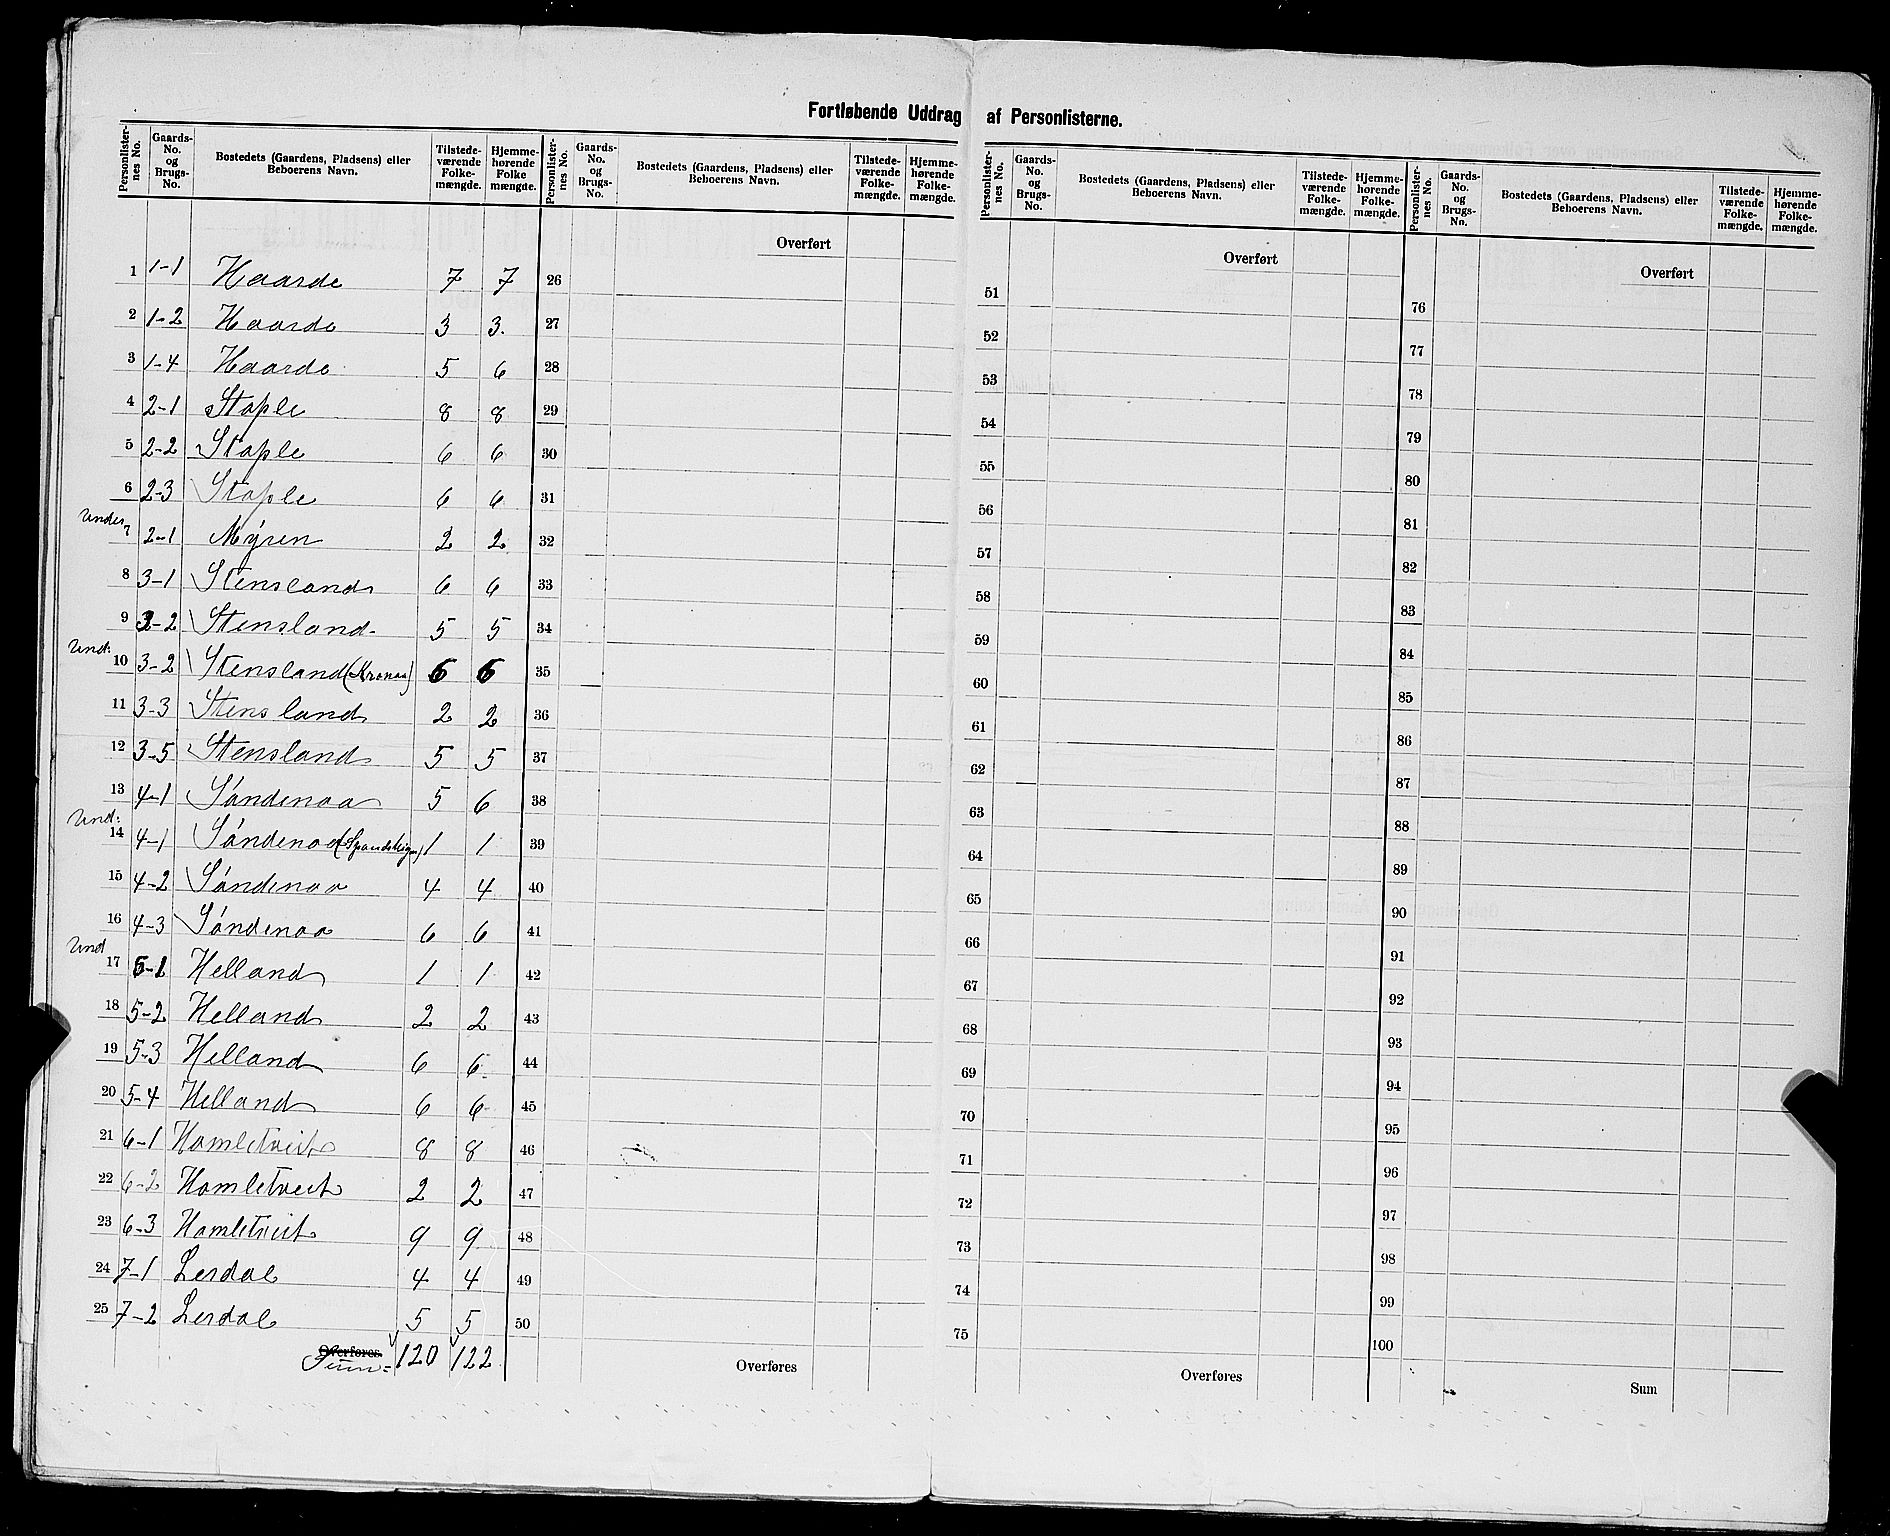 Fortløbende Uddrag af Personlisterne.
Personlister-nes No. Gaards-No. og Brugs-No. Bostedets (Gaardens, Pladsens) eller Beboerens Navn. Tilstede-værende Folke-mængde. Hjemme-hørende Folke mængde. Personlister-nes No. Gaards-No. og Brugs-No. Bostedets (Gaardens, Pladsens) eller Beboerens Navn. Tilstede-værende Folke-mængde. Hjemme-hørende Folke-mængde. Personlister-nes No. Gaards-No. og Brugs-No. Bostedets (Gaardens, Pladsens) eller Beboerens Navn. Tilstede-værende Folke-mængde. Hjemme-hørende Folke-mængde. Personlister-nes No. Gaards-No. og Brugs-No. Bostedets (Gaardens, Pladsens) eller Beboerens Navn. Tilstede-værende Folke-mængde. Hjemme-hørende Folke-mængde.
Overført Overført Overført
1 1-1 Haarde 7 7 26 51 76
2 1-2 Haarde 3 3. 27 52 77
3 1-4 Haarde 5 6 28 53 78
4 2-1 Staple 8 8 29 54 79
5 2-2 Staple 6 6 30 55 80
6 2-3 Staple 6 6 31 56 81
Under 7 2-1 Myren 2 2 32 57 82
8 3-1 Stensland 6 6 33 58 83
9 3-2 Stensland 5 5 34 59 84
Und: 10 3-2 Stensland (Kronaa) 6 6 35 60 85
11 3-3 Stensland 2 2 36 61 86
12 3-5 Stensland 5 5 37 62 87
13 4-1 Søndenaa 5 6 38 63 88
Und: 14 4-1 Søndenaa 1 1 39 64 89
15 4-2 Søndenaa 4 4 40 65 90
16 4-3 Søndenaa 6 6 41 66 91
Und 17 5-1 Helland 1 1 42 67 92
18 5-2 Helland 2 2 43 68 93
19 5-3 Helland 6 6 44 69 94
20 5-4 Helland 6 6 45 70 95
21 6-1 Hamletveit 8 8 46 71 96
22 6-2 Hamletveit 2 2 47 72 97
23 6-3 Hamletveit 9 9 48 73 98
24 7-1 Lerdal 4 4 49 74 99
25 7-2 Lerdal 5 5 50 75 100
Overføres. Sum= 120 122 Overføres Overføres Sum